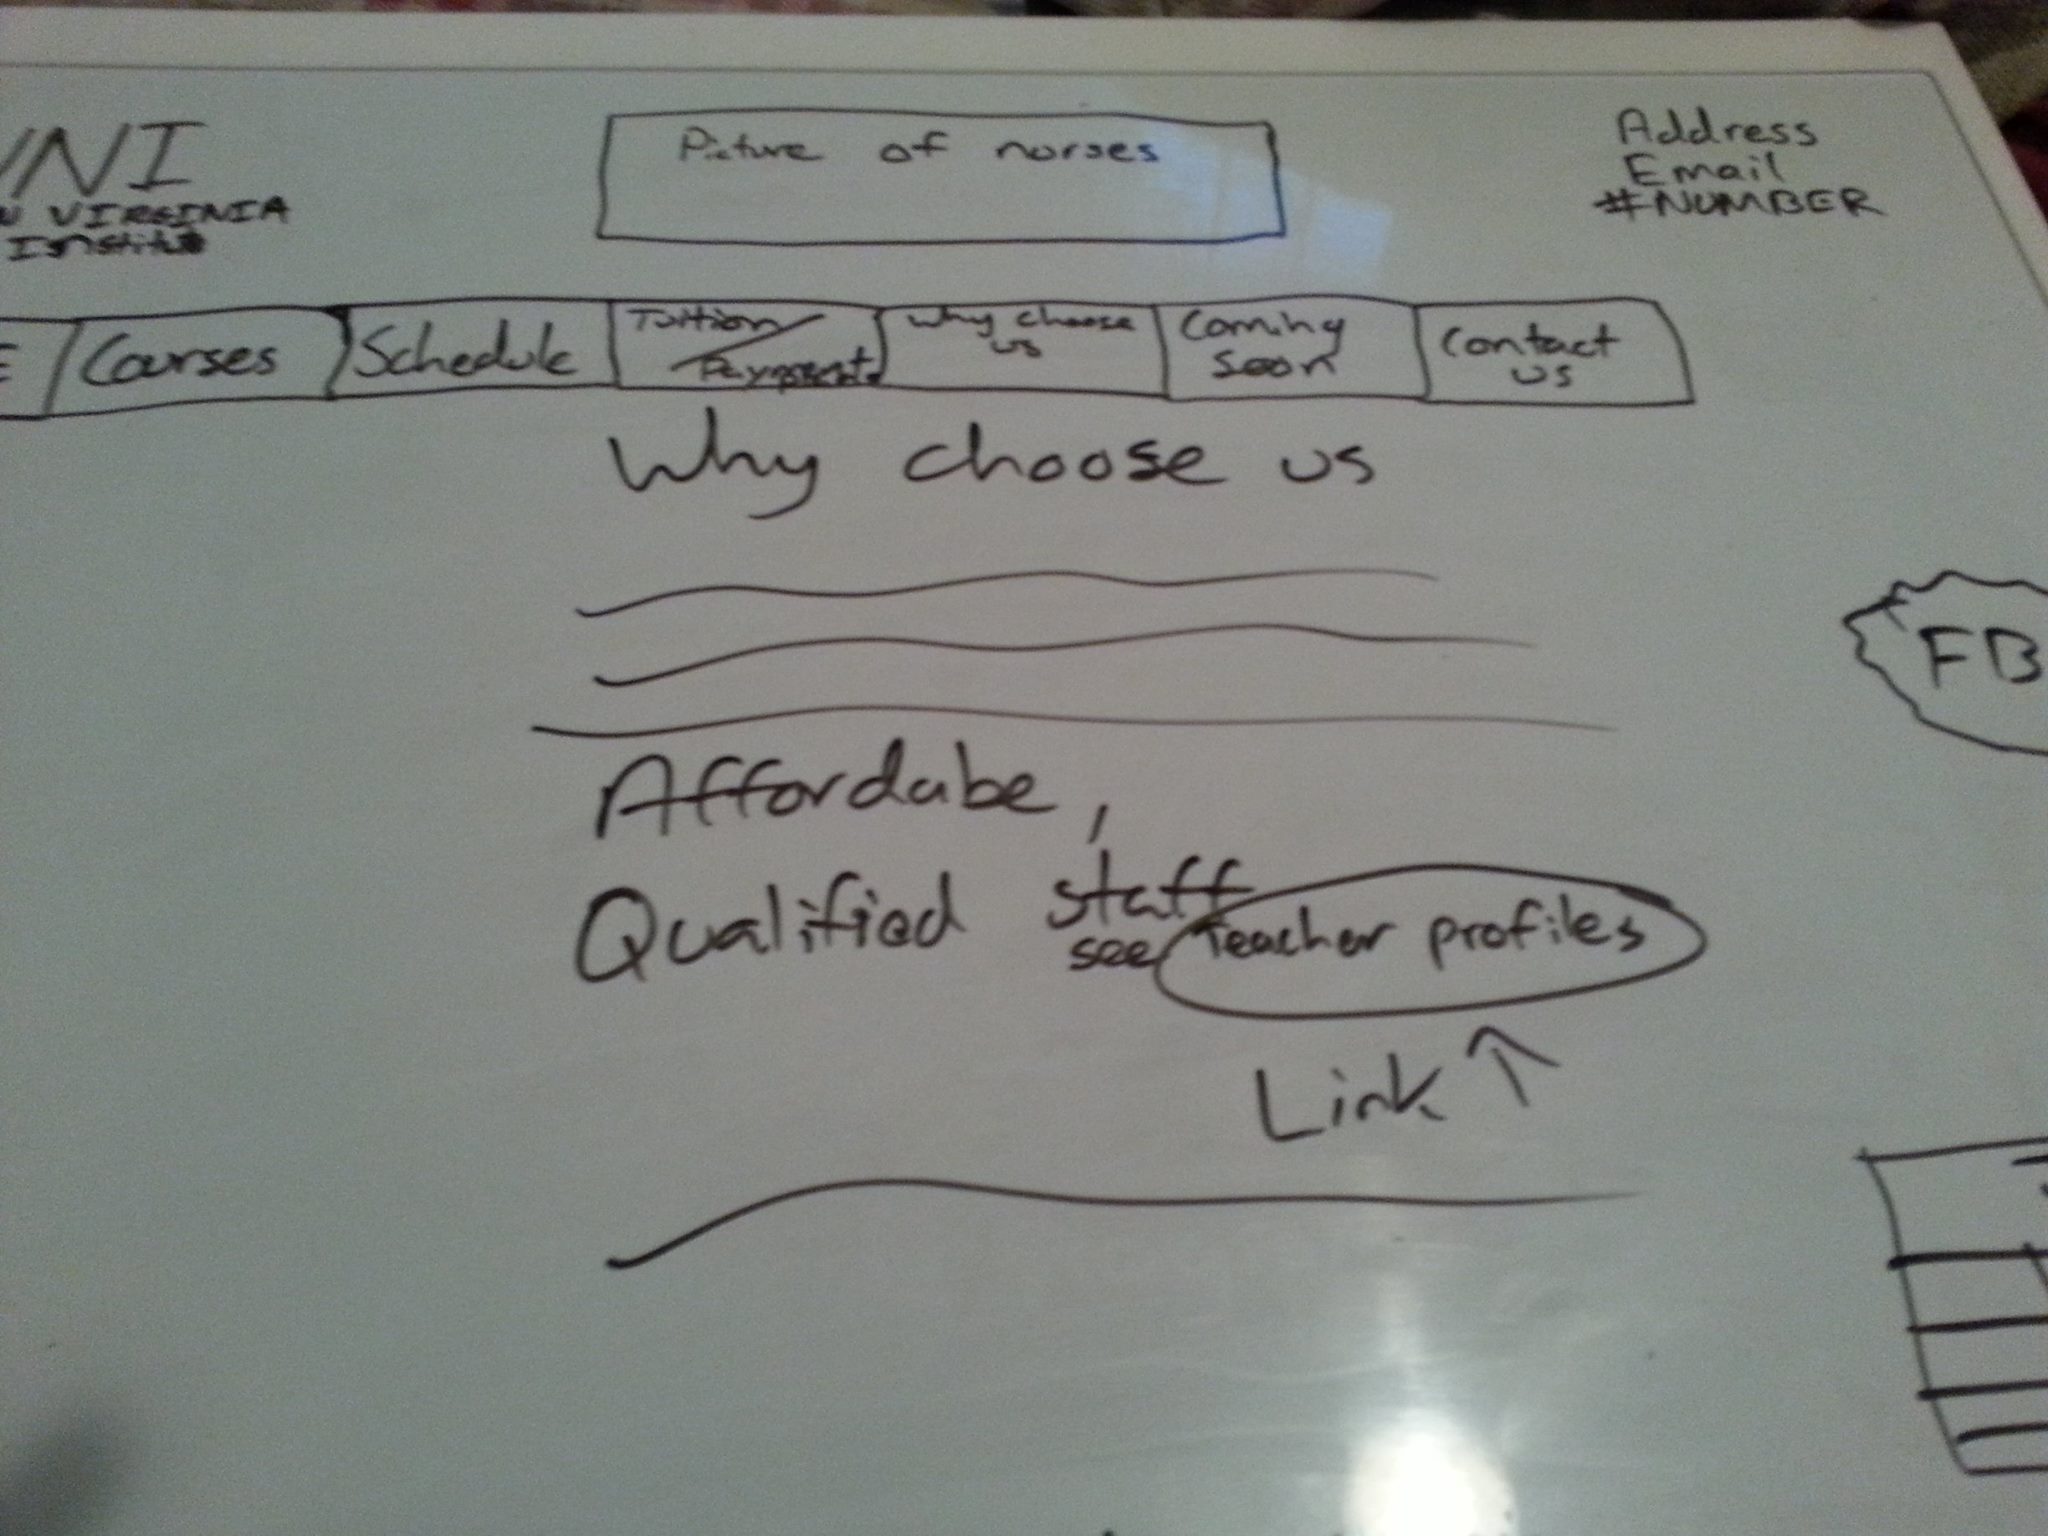 VNI
VIRGINIA
Institute
Picture of norses
Address
Email
#NUMBER
E
Courses
Schedule
Tuition/
Payment
Why choose
us
Coming
Soon
Contact
us
Why choose us
FB
Affordabe,
Qualified staff
see Teacher profiles
Link ↑